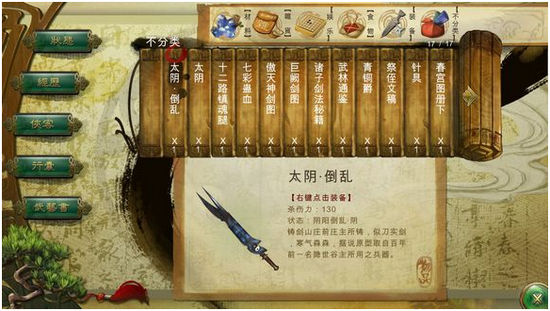 狀態
經歷
俠客
行囊
武藝書
材料
暗器
娱乐
食物
装备
不分类
不分类
17 / 17
太阴·倒乱 x1
太阴 x1
十二路镇魂腿 x1
七彩蛊血 x1
傲天神剑图 x1
巨阙剑图 x1
诸子剑法秘籍 x1
武林通鉴 x1
青铜爵 x1
祭侄文稿 x1
针具 x1
春宫图册下 x1
太阴·倒乱
【右键点击装备】
杀伤力：130
状态：阴阳倒乱·阴
铸剑山庄前庄主所铸，似刀实剑
，寒气森森，据说原型取自百年
前一名隐世谷主所用之兵器。
物品